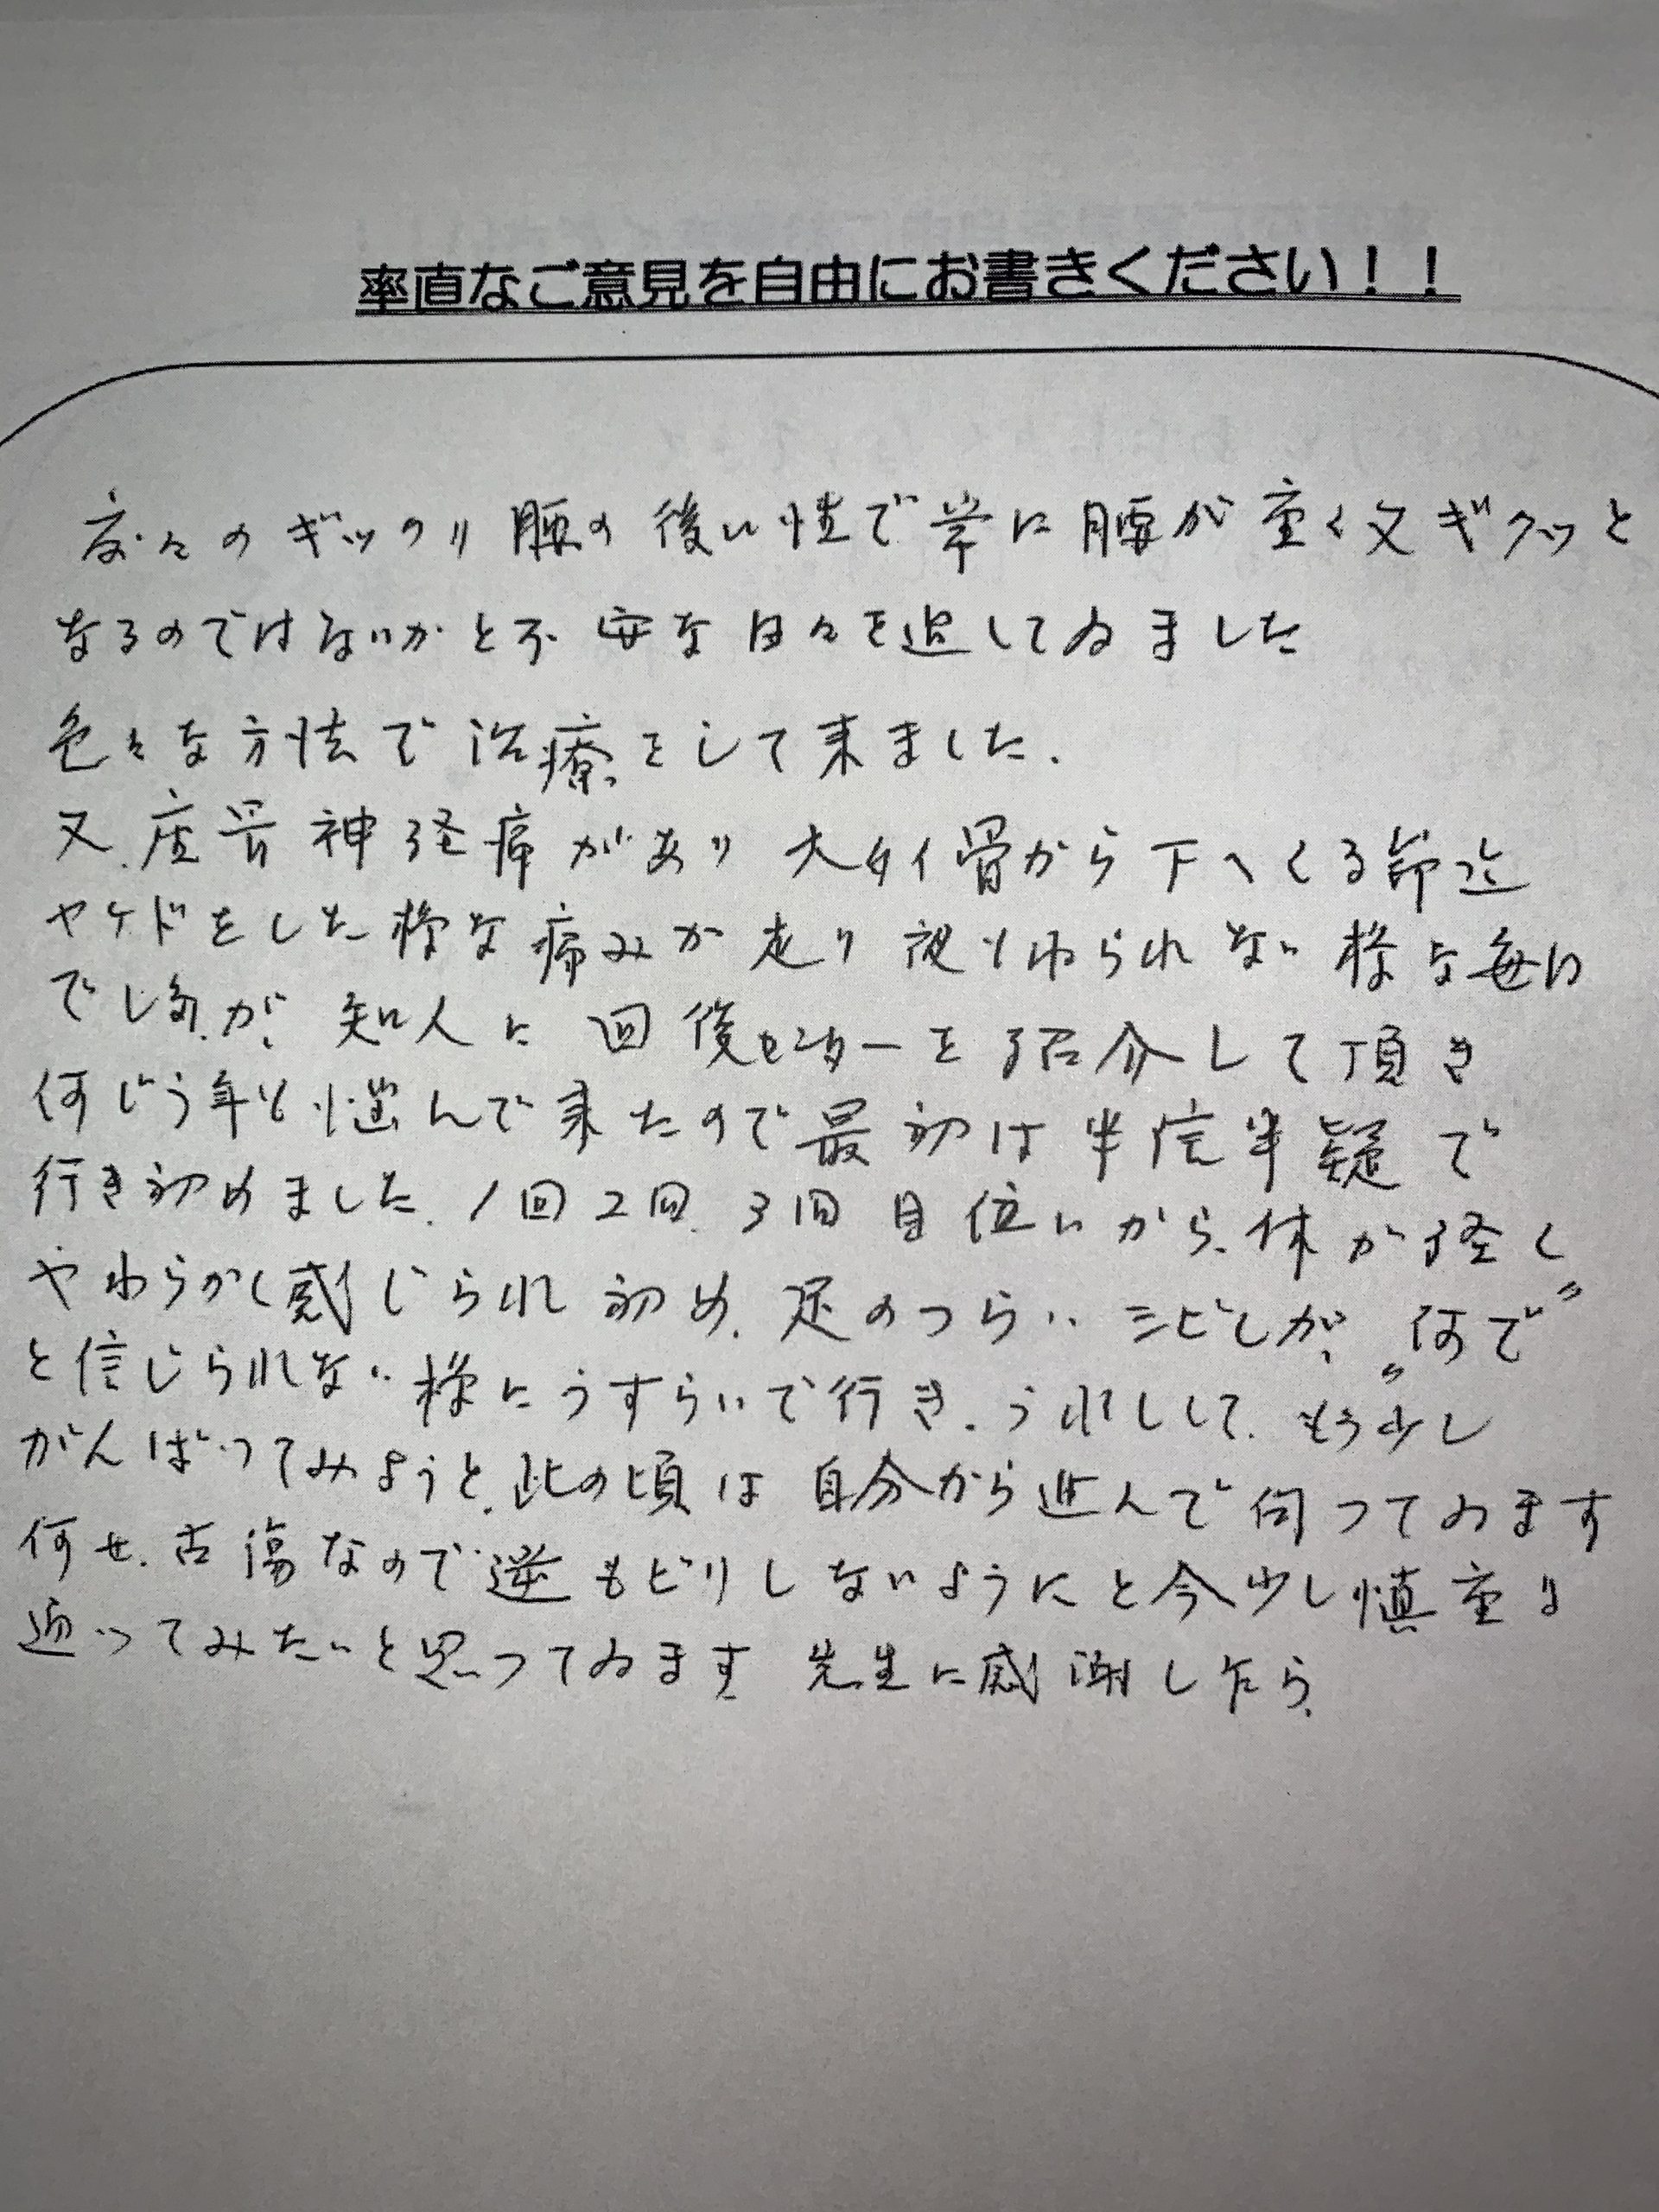 率直なご意見を自由にお書きください！！
度々のギックリ腰の後い性で常に腰が重く又ギクッと
なるのではないかと不安な日々を過してゐました
色々な方法で治療をして来ました.
又、座骨神経痛があり大タイ骨から下へくる節迄
ヤケドをした様な痛みが走り夜もねられない様な毎日
でしたが、知人に回復センターを紹介して頂き
何じう年も悩んで来たので最初は半信半疑で
行き初めました、1回2回、3回目位いから、体が軽く
やわらかく感じられ初め、足のつらいシビレが、"何で"
と信じられない様にうすらいで行き、うれしくて、"もう少し
がんばってみようと、此の頃は自分から進んで伺ってゐます
何せ、古傷なので逆もどりしないようにと今少し慎重に
通ってみたいと思ってゐます 先生に感謝しながら、